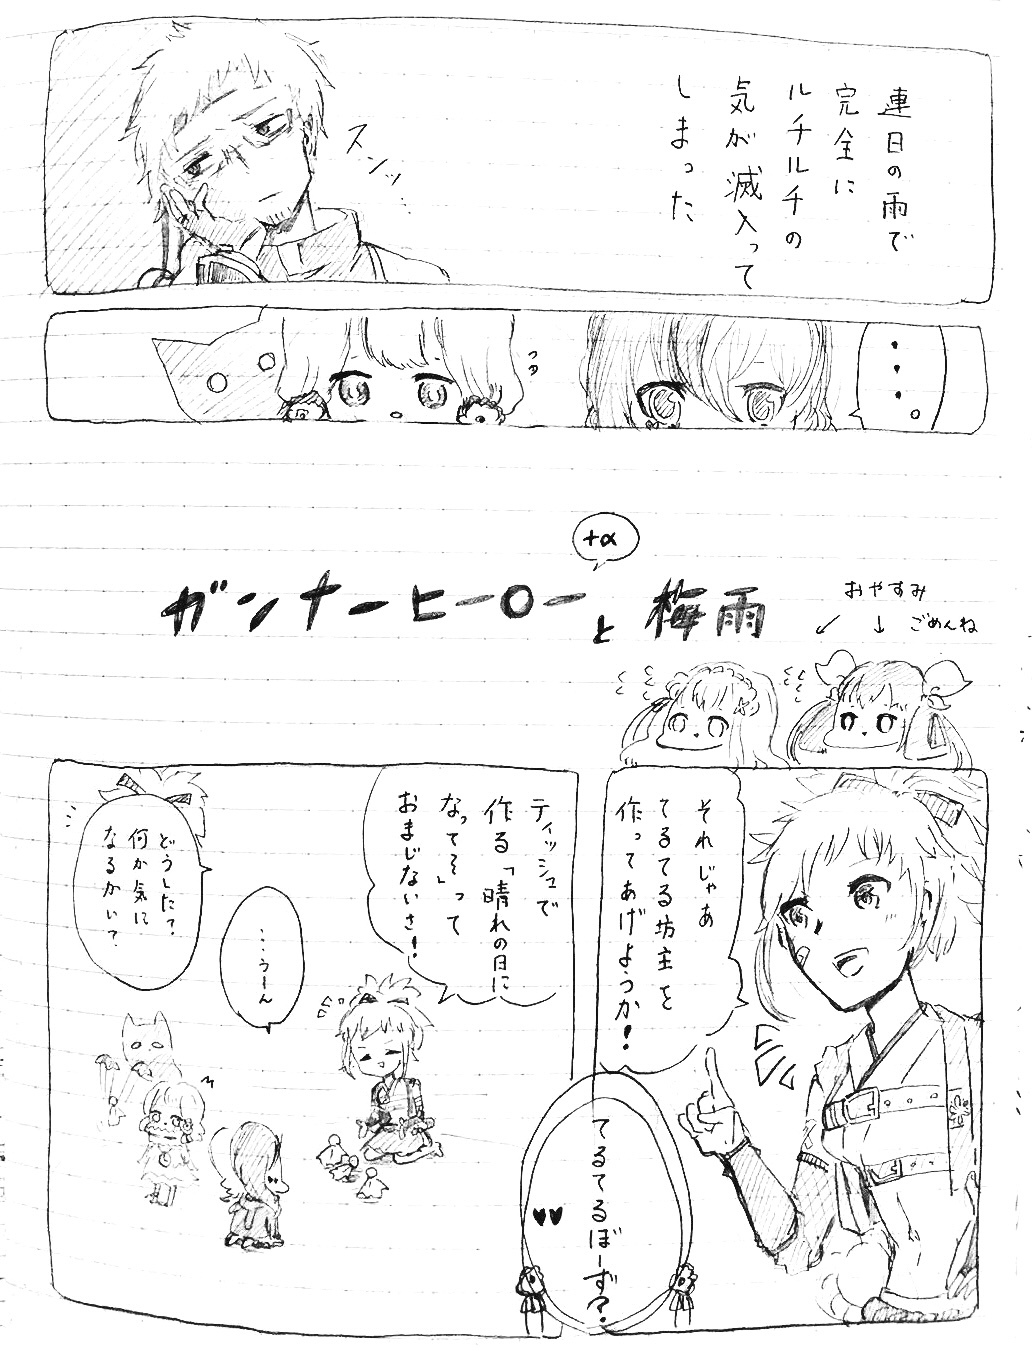 連日の雨で
完全に
ルチルチの
気が滅入って
しまった
スンッ…
+α
ガンナーヒーローと梅雨
おやすみ
ごめんね
それじゃあ
てるてる坊主を
作ってあげようか!
てるてるぼーず?
ティッシュで
作る「晴れの日に
なってそ」って
おまじないさ!
……うーん
どうした?
何か気に
なるかい?